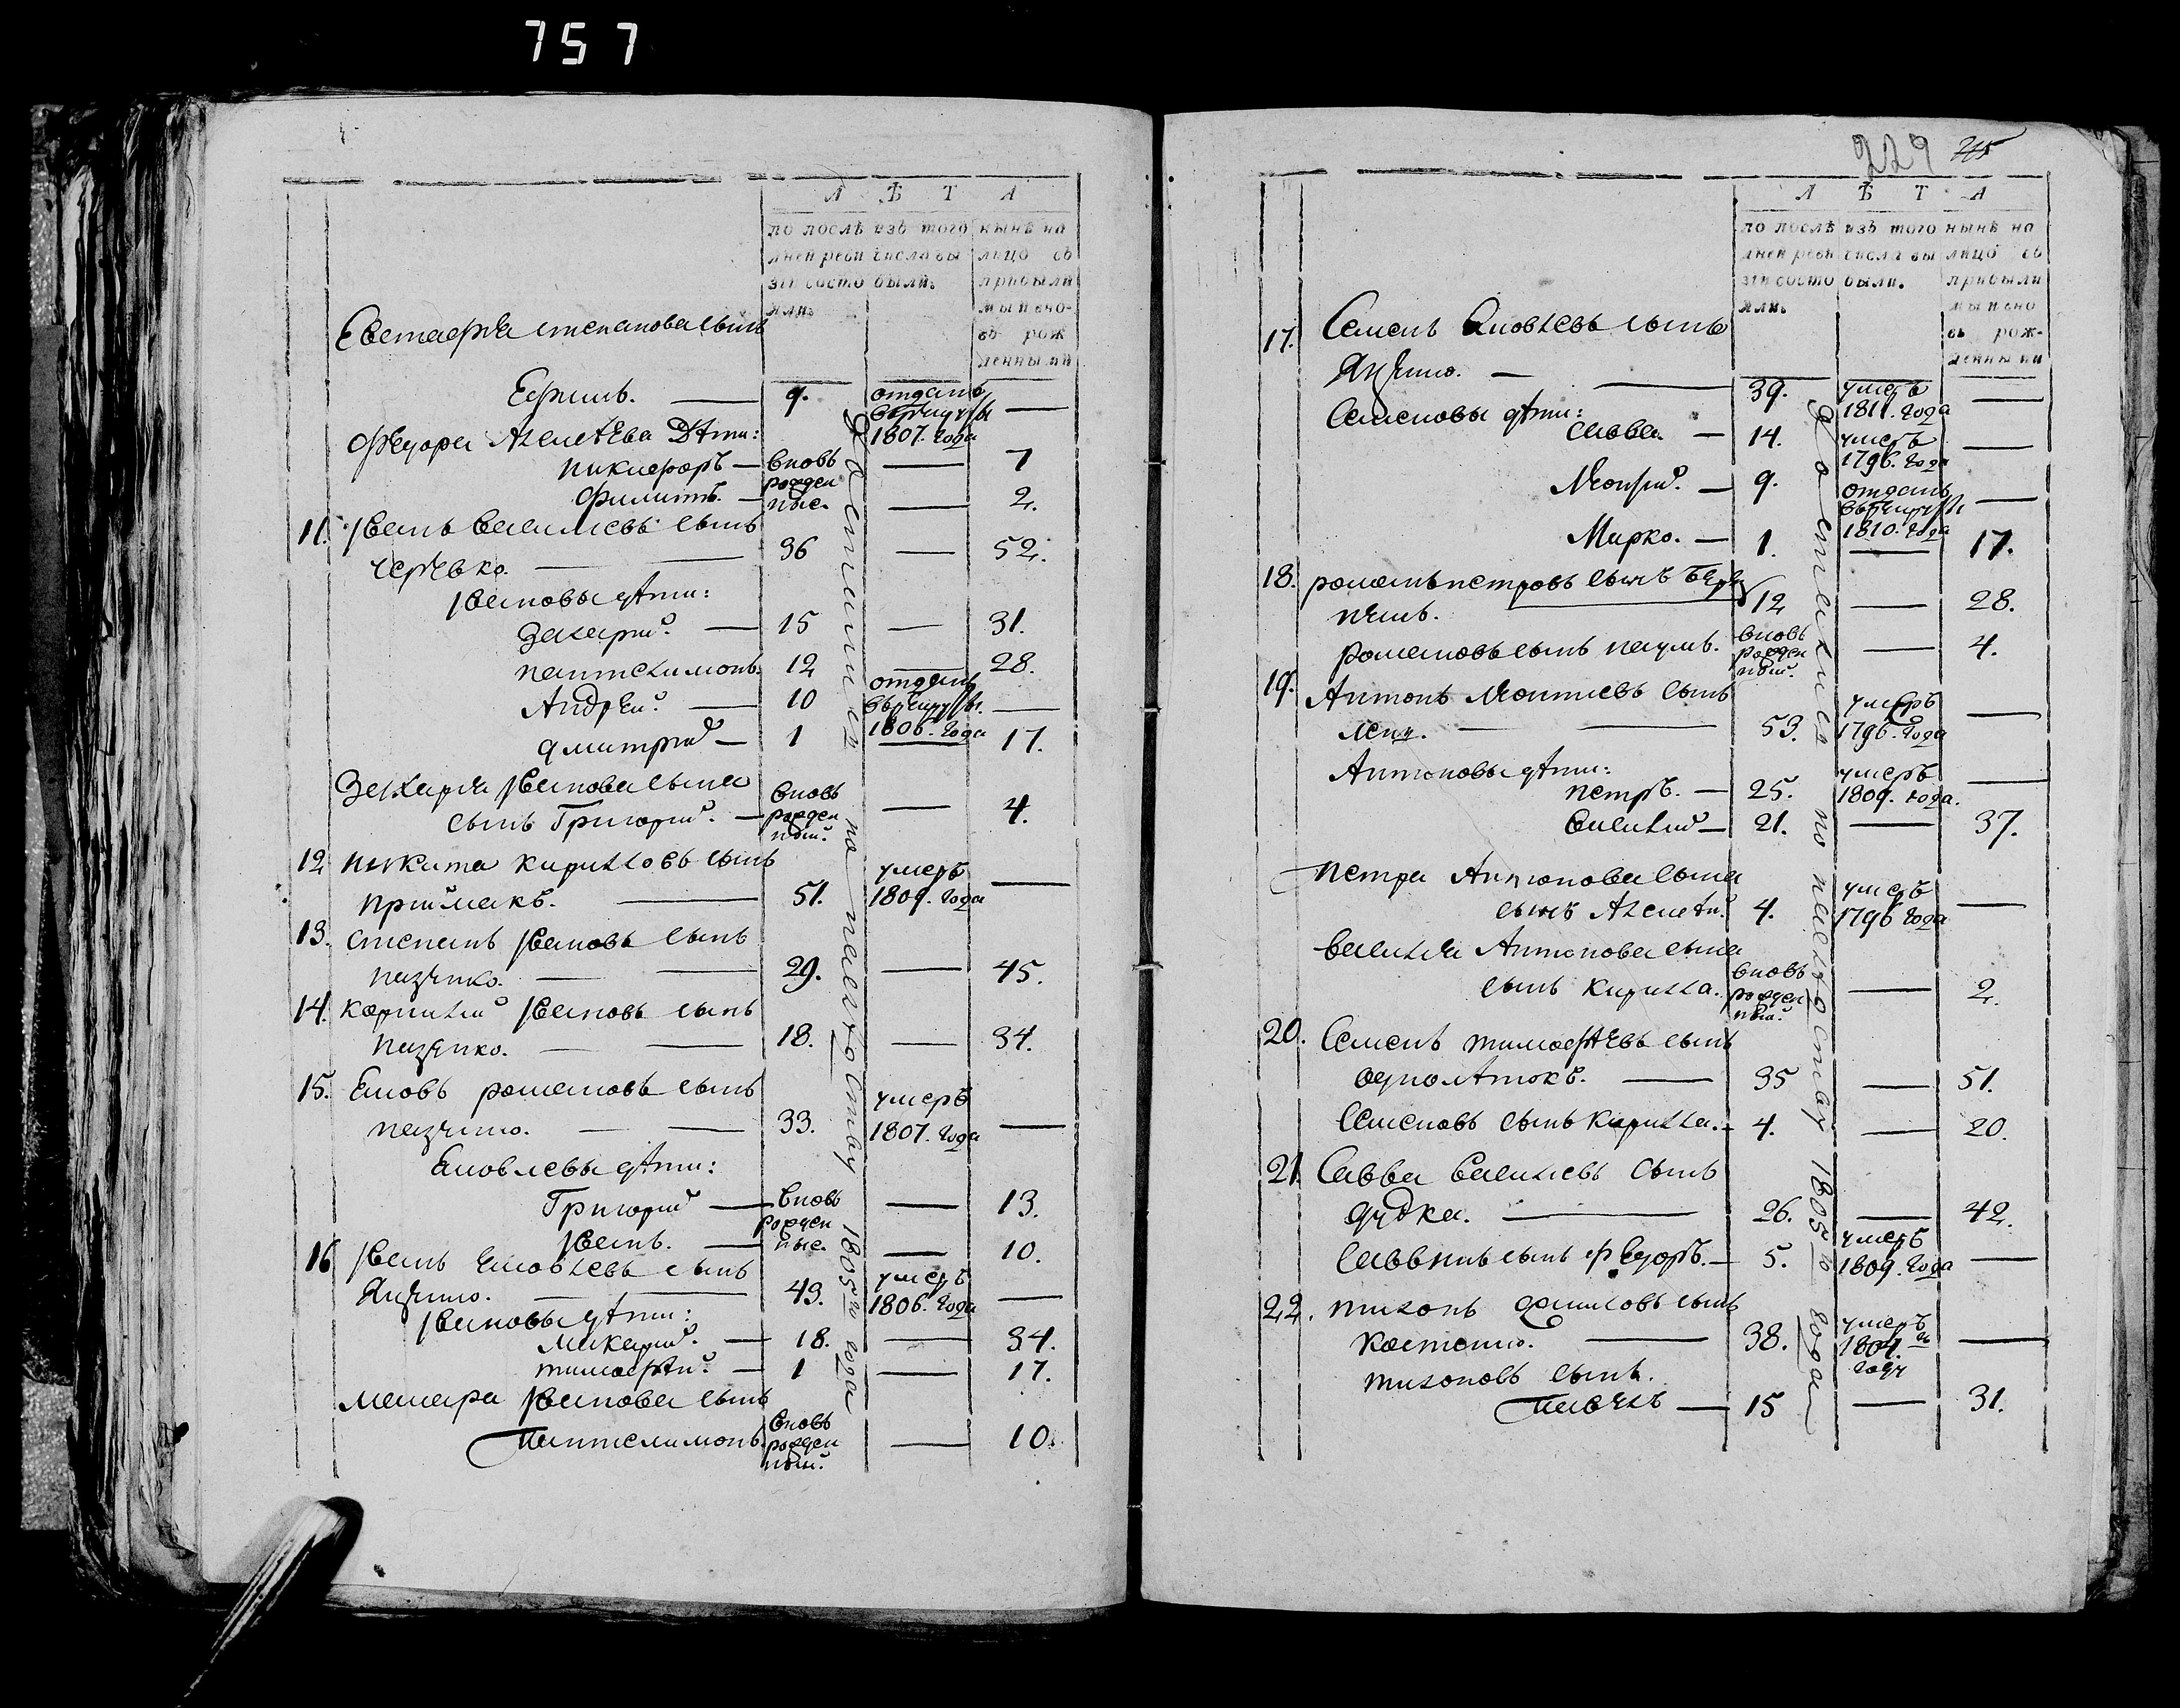 757
Л Ѣ Т А
по послѣ изъ того нынѣ на
дней реви числа вы лицо съ
зіи состо были. прибыли
яли. мы и вно-
въ рож
денными
Евстафія степанова сынъ
Ефимъ. — 9. отданъ в рекруты 1807. года —
Федора Алексѣева Дѣти:
никифоръ — вновь — 7
рожден
филиппъ. — ные. — 2.
11. Иванъ василиевъ сынъ
черевко. — 36 — 52.
Ивановы дѣти:
Захарій. — 15 — 31.
пантелимонъ. 12 — 28.
Андрей. — 10 отданъ в рекруты. 1806. года —
дмитрій — 1 — 17.
Захарія Иванова сына
сынъ Григорій. — вновь рожденный. — 4.
12. никита кириловъ сынъ
приймакъ. — 51. умеръ 1809. года —
13. степанъ Ивановъ сынъ
назенко. — 29. — 45.
14. корнилій Ивановъ сынъ
назенко. — 18. — 34.
15. Яковъ романовъ сынъ
назенко. — 33. умеръ 1807. года —
Яковлевы дѣти:
Григорій — вновь — 13.
рожден
Иванъ. — ные. — 10.
16. Иванъ Яковлевъ сынъ
Яценко. — 43. умеръ 1806. года —
Ивановы дѣти:
макарій. — 18. — 34.
тимофѣй. — 1 — 17.
макара Иванова сынъ
Пантелимонъ. вновь рожденный. — 10.
достались по наслѣдству 1805го года
229 215
Л Ѣ Т А
по послѣ изъ того нынѣ на
дней реви числа вы лицо съ
зіи состо были. прибыли
яли. мы и вно
въ рож-
денными
17. Семенъ Яковлевъ сынъ
Яценко. — 39. умеръ 1811. года —
Семеновы дѣти:
савва. — 14. умеръ 1796. года —
Леонтій. — 9. отданъ в рекруты 1810. года —
Марко. — 1. — 17.
18. романъ петровъ сынъ
12 — 28.
романовъ сынъ наумъ. вновь рожденный. — 4.
19. Антонъ Леонтиевъ сынъ
53. умеръ 1796. года —
Антоновы дѣти:
петръ. — 25. умеръ 1809. года. —
василий — 21. — 37.
петра Антонова сына
сынъ Алексѣй. 4. умеръ 1796 года —
василія Антонова сына
сынъ кирилла. вновь рожденный. — 2.
20. Семенъ тимофѣевъ сынъ
однолѣтокъ. — 35 — 51.
Семеновъ сынъ кирилла. — 4. — 20.
21. Савва василиевъ сынъ
дудка. — 26. — 42.
саввинъ сынъ федоръ. — 5. умеръ 1809. года —
22. тихонъ даниловъ сынъ
костенко. — 38. умеръ 1804.го году —
тихоновъ сынъ.
Павелъ — 15 — 31.
достались по наслѣдству 1805го года